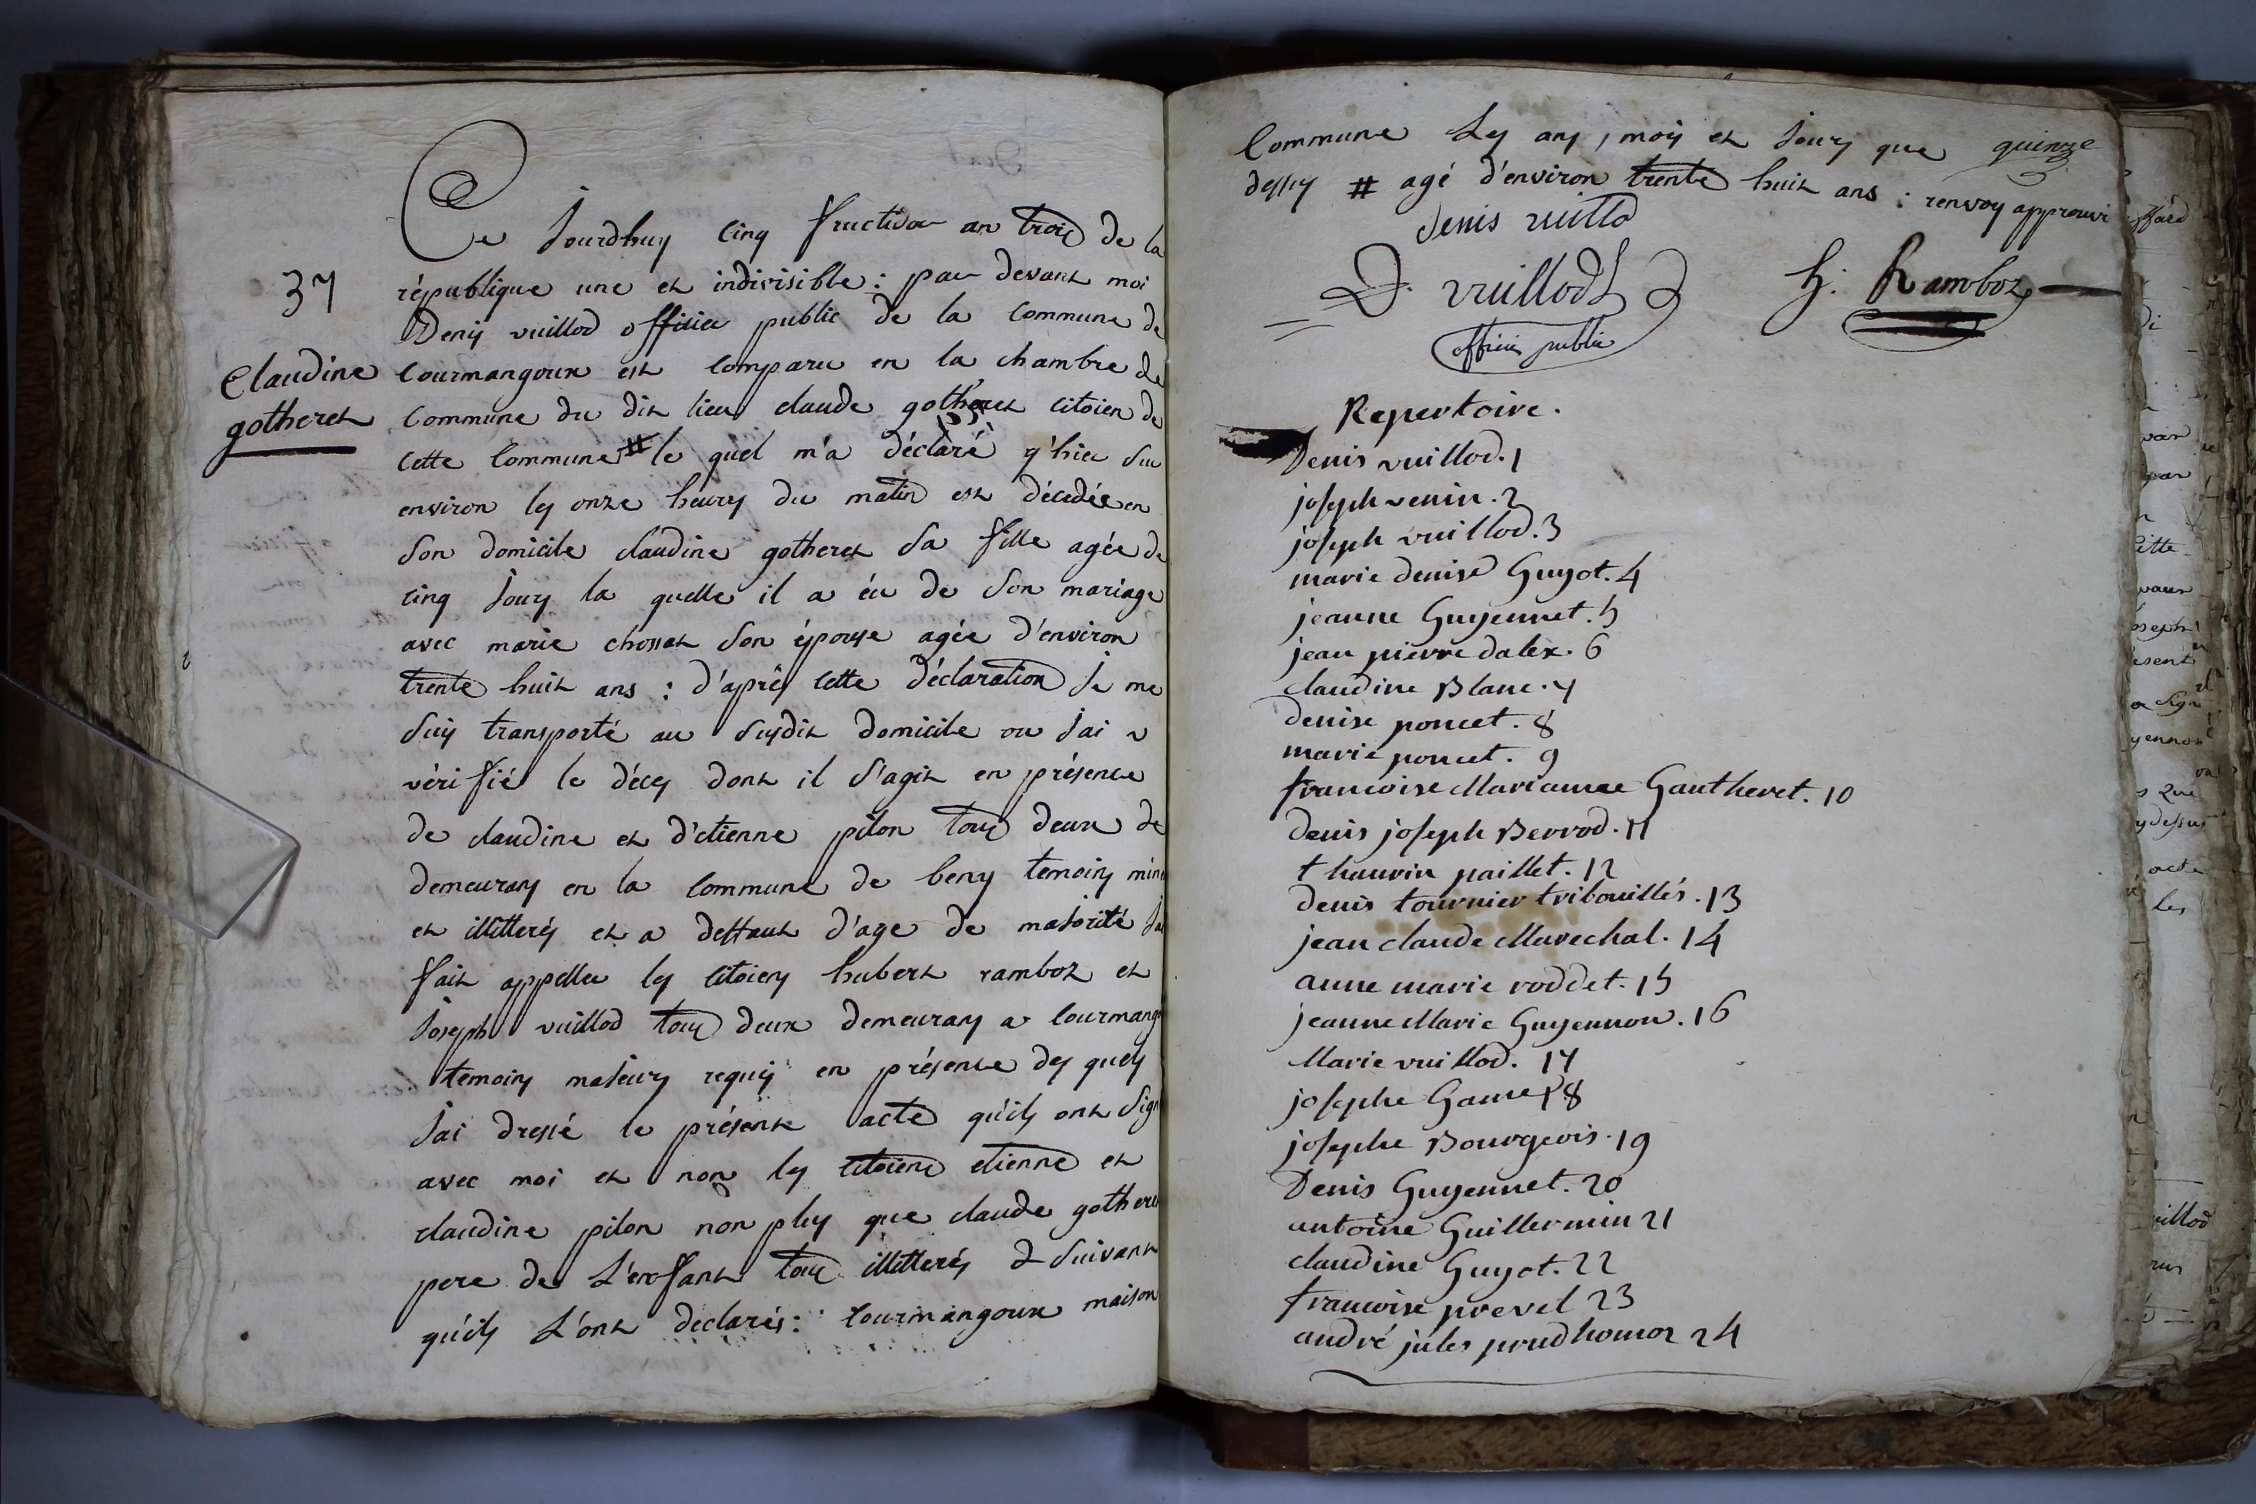 37
Claudine
gotheret
Ce Jourdhuy cinq fructidor an trois de la
république une et indivisible : par devant moi
Denis vuillod officier public de la commune de
Courmangoux est comparu en la chambre de
commune du dit lieu claude gotheret citoien de
cette commune # le quel m'a déclaré q'hier sur
environ les onze heures du matin est décédée en
son domicile claudine gotheret sa fille agée de
cinq jours la quelle il a éu de son mariage
avec marie chossat son épouse agée d'environ
trente huit ans : d'après cette déclaration Je me
suis transporté au susdit domicile ou Jai
vérifié le décès dont il s'agit en présence
de claudine et d'etienne pilon tous deux de
demeurans en la commune de beny temoins
et illitterés et a deffaut d'age de majorité Jai
fait appeller les citoiens hubert ramboz et
Joseph vuillod tous deux demeurans a Courmang
temoins majeurs requis en présence des quels
Jai dressé le présent acte qu'ils ont sign
avec moi et non les citoiens etienne et
claudine pilon non plus que claude gotheret
pere de L'enfant tous illitterés d suivant
qu'ils L'ont declarés : Courmangoux maison
Commune Les ans, mois et Jours que
dessus # agé d'environ trente huit ans : renvoy approuvé
quinze
denis vuillod
D. vuillod
officier public
h : Ramboz
Repertoire .
Denis vuillod . 1
joseph venin . 2
joseph vuillod . 3
marie denise Guyot . 4
jeanne Guyennet . 5
jean pierre dalex . 6
claudine Blanc . 7
denise poncet . 8
marie poncet . 9
francoise Marianne Gautheret . 10
denis joseph Berrod . 11
thaurin paillet . 12
denis tournier tribouillés . 13
jean claude Marechal . 14
anne marie roddet . 15
jeanne Marie Guyennon . 16
Marie vuillod . 17
josephe Game 18
josephe Bourgeois . 19
Denis Guyennet . 20
antoine Guillermin 21
claudine Guyot . 22
francoise prevel 23
andré jules prudhomor 24